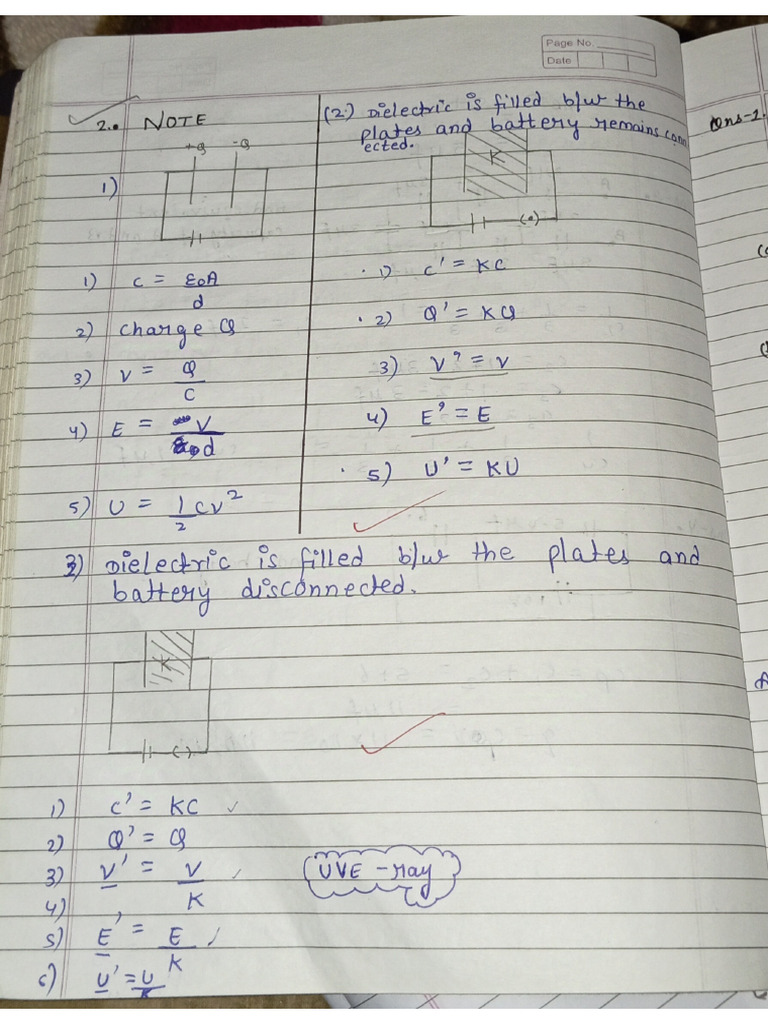 Page No.
Date
2. NOTE
+Q -Q
1)
1) C = ε0A
d
2) Charge Q
3) V = Q
C
4) E = V
d
5) U = 1 CV²
2
(2.) Dielectric is filled b/w the
plates and battery remains conn
ected.
K
(•)
1) C' = KC
2) Q' = KQ
3) V' = V
4) E' = E
5) U' = KU
3) Dielectric is filled b/w the plates and
battery disconnected.
K
( )
1) C' = KC
2) Q' = Q
3) V' = V
K
4)
5) E' = E
K
6) U' = U
K
UVE - ray
ons-2.